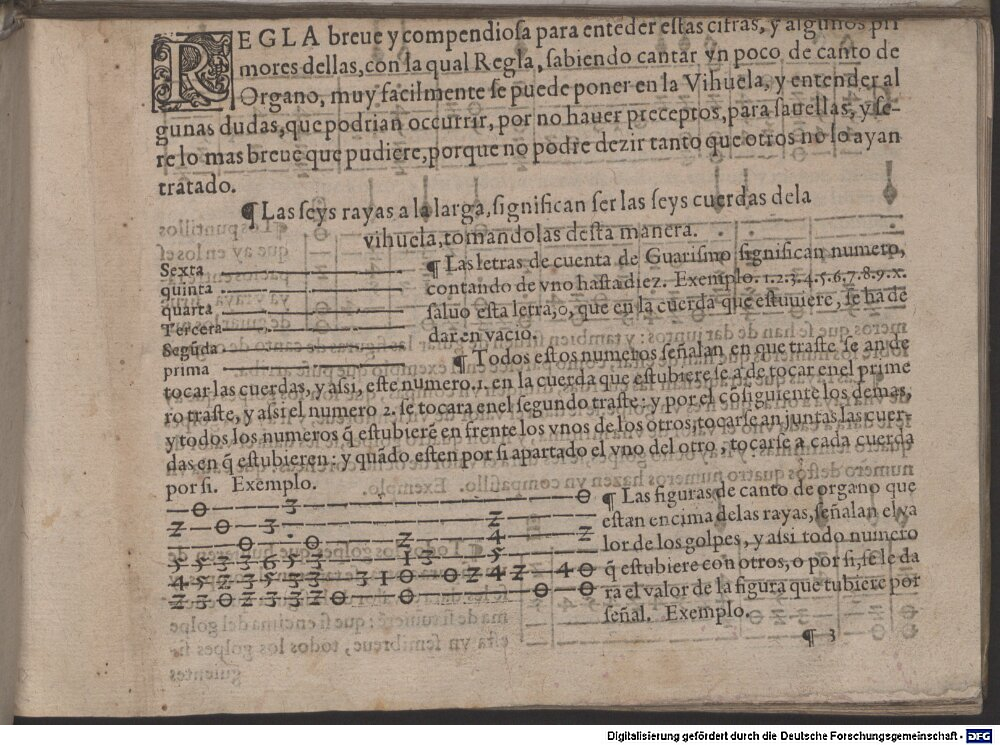 REGLA breue y compendiosa para entēder estas cifras, y algunos pri
mores dellas, con la qual Regla, sabiendo cantar yn poco de canto de
Organo, muy facilmente se puede poner en la Vihuela, y entender al
gunas dudas, que podrian occurrir, por no hauer preceptos, para sauellas, y se-
re lo mas breue que pudiere, porque no podre dezir tanto que otros no lo ayan
tratado.
¶ Las seys rayas a la larga, significan ser las seys cuerdas dela
vihuela, tomandolas desta manera.
Sexta
quinta
quarta
Tercera
Segūda
prima
¶ Las letras de cuenta de Guarismo significan numero,
contando de vno hasta diez. Exemplo. 1.2.3.4.5.6.7.8.9.x.
saluo esta letra, o, que en la cuerda que estuuiere, se ha de
dar en vacio.
¶ Todos estos numeros señalan en que traste se an de
tocar las cuerdas, y assi, este numero .1. en la cuerda que estubiere se a de tocar enel prime
ro traste, y assi el numero 2. se tocara enel segundo traste: y por el cōsiguiente los demas,
y todos los numeros q̄ estubierē en frente los vnos de los otros, tocarse an juntas las cuer-
das en q̄ estubieren: y quādo esten por si apartado el vno del otro, tocarse a cada cuerda
por si. Exemplo.
0 3 0
2 0 3 2
0 0 2 4 2
5 5 3 3 6 5 3 1 3 5
4 5 2 3 5 3 3 3 1 0 0 2 4 2 4 0
2 3 0 2 3 3 2 0 0 0 0
¶ Las figuras de canto de organo que
estan encima delas rayas, señalan el va
lor de los golpes, y assi todo numero
q̄ estubiere con otros, o por si, se le da
ra el valor de la figura que tubiere por
señal. Exemplo.
¶ 3
Digitalisierung gefördert durch die Deutsche Forschungsgemeinschaft - DFG